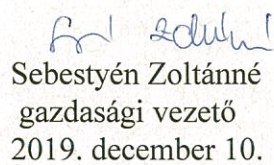 Sebestyén Zoltánné
gazdasági vezető
2019. december 10.